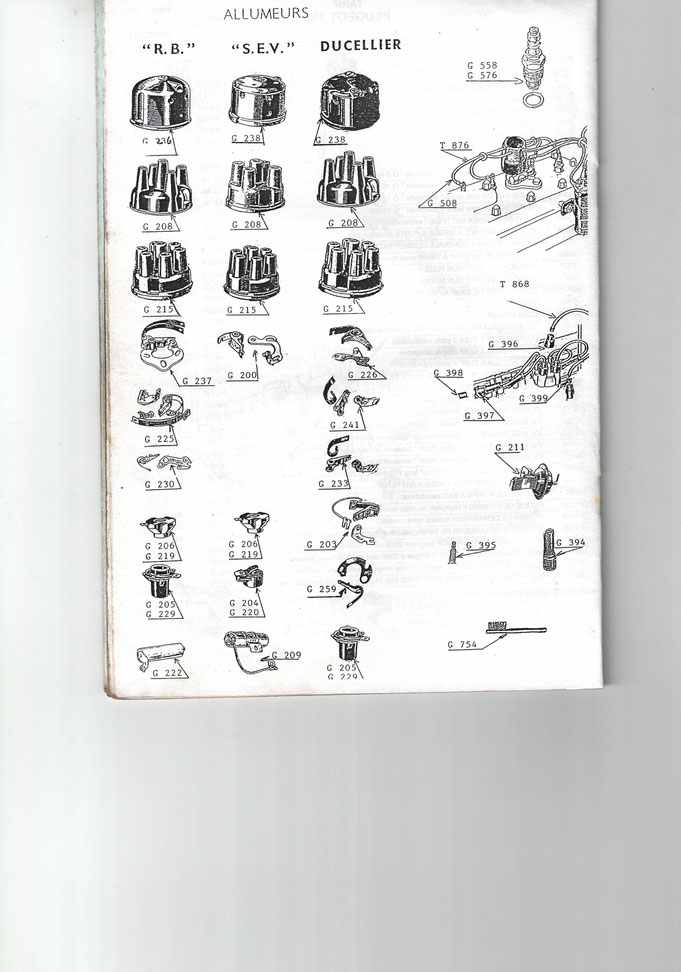 ALLUMEURS
"R.B."
"S.E.V."
DUCELLIER
G 236
G 238
G 238
G 558
G 576
G 208
G 208
G 208
T 876
G 508
G 215
G 215
G 215
T 868
G 237
G 200
G 226
G 396
G 398
G 397
G 399
G 225
G 241
G 211
G 230
G 233
G 206
G 219
G 206
G 219
G 203
G 395
G 394
G 205
G 229
G 204
G 220
G 259
G 222
G 209
G 205
G 229
G 754